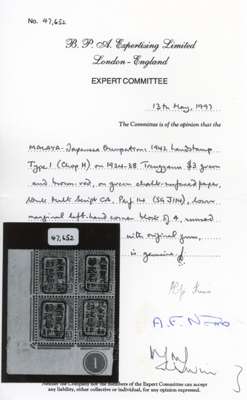 No. 47,652
B. P. A. Expertising Limited
London - England
EXPERT COMMITTEE
13th May, 1997
The Committee is of the opinion that the
MALAYA - Japanese Occupation 1942 handstamp
Type 1 (Chop H) on 1924-38 Trengganu $3 green
and brown-red, on green chalk-surfaced paper,
Mult Script CA, Perf 14 (SG J114), lower
marginal left-hand corner block of 4, unused
47,652
with original gum,
is genuine
1
Neither the Company nor the members of the Expert Committee can accept
any liability, either collective or individual, for any opinion expressed.